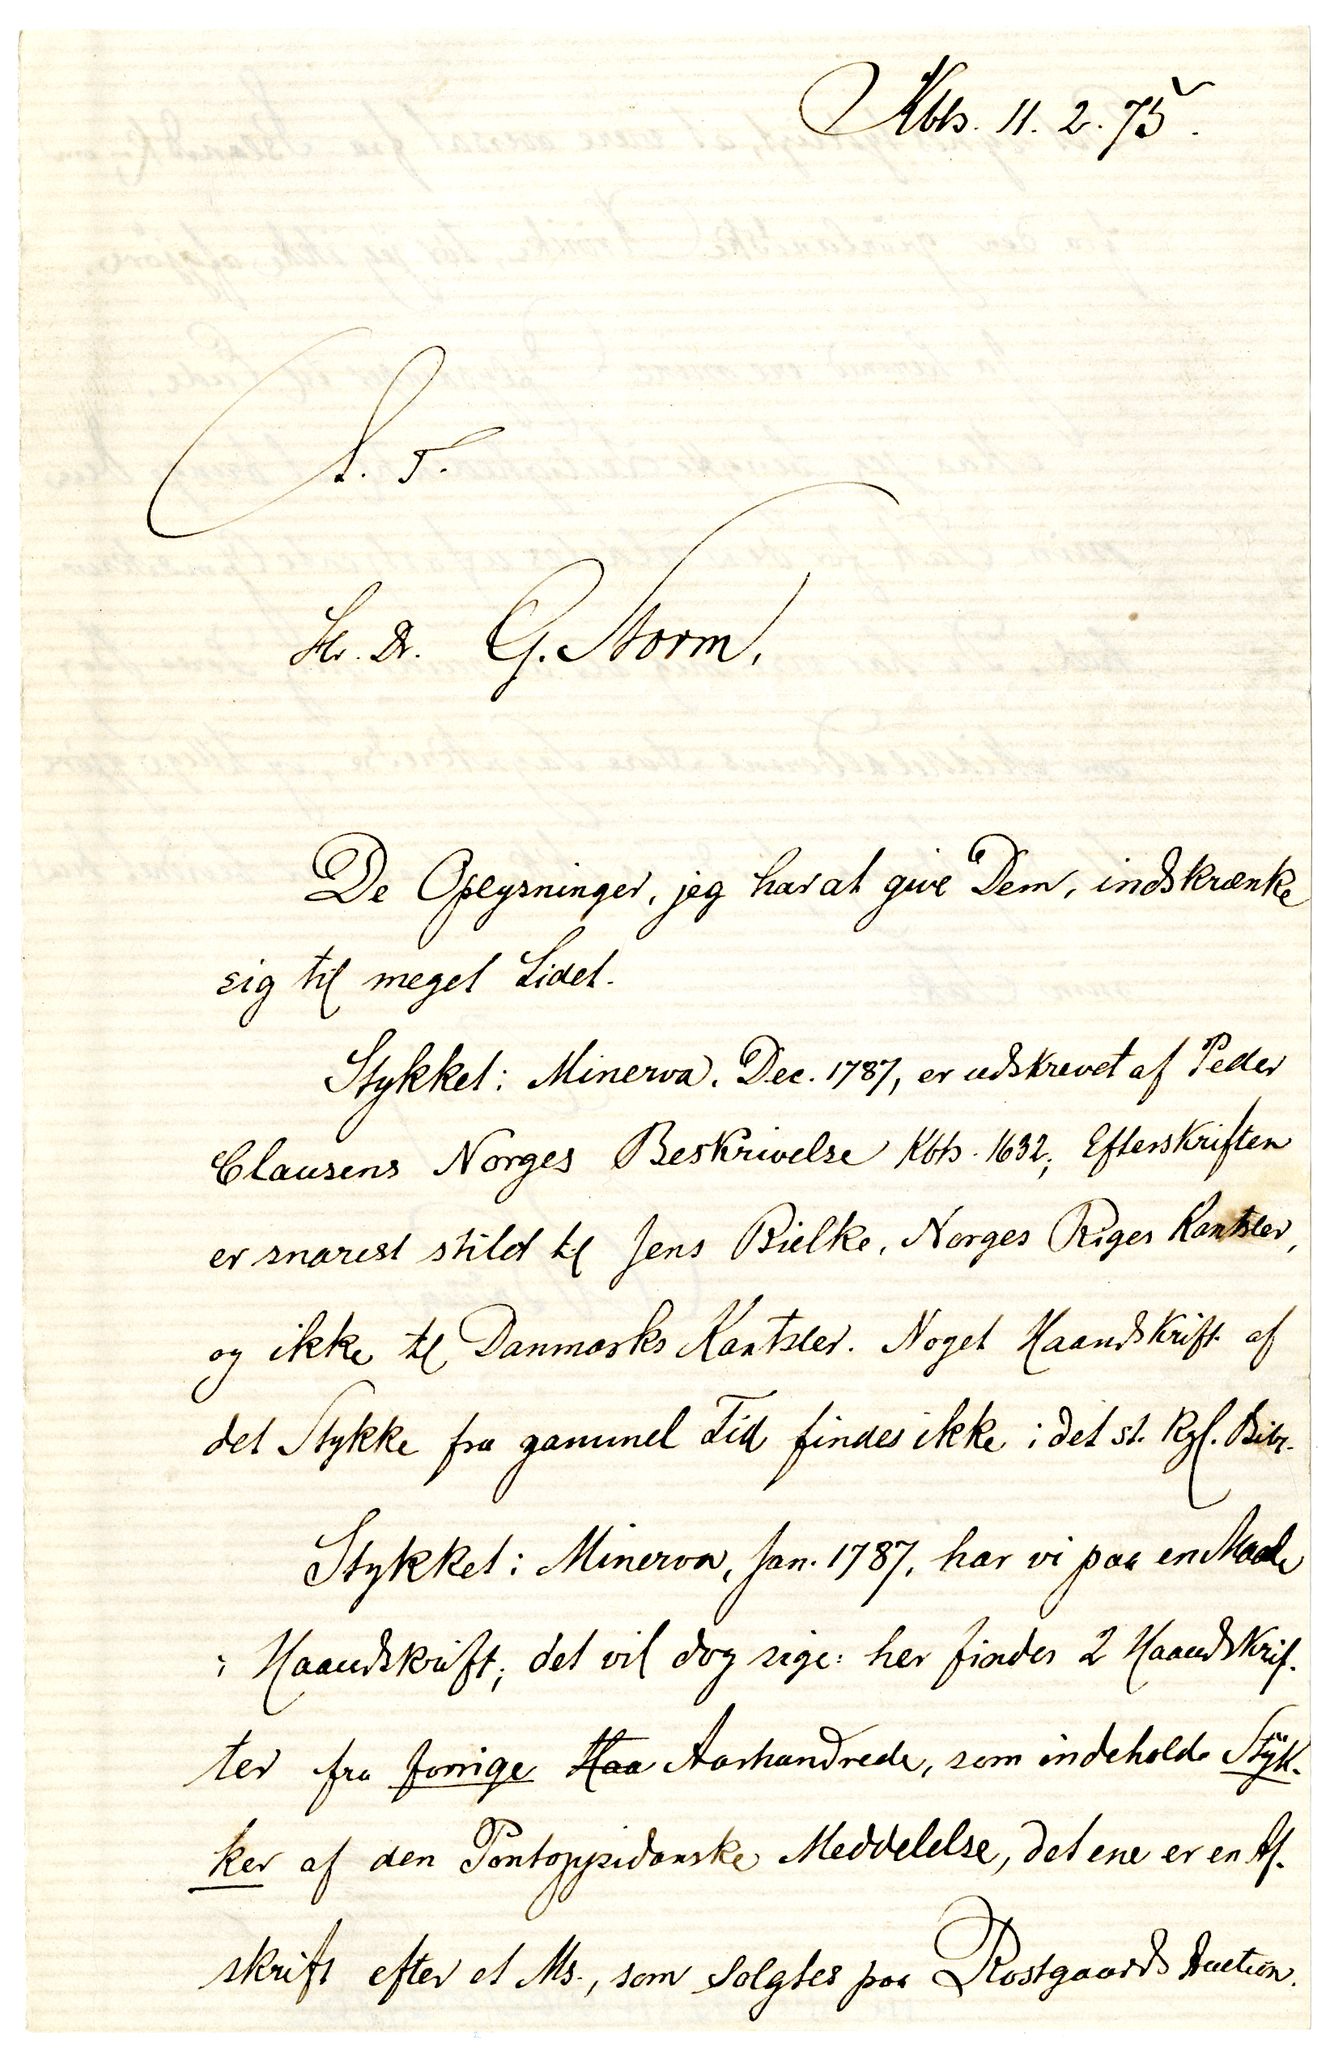 Kbh. 11. 2. 75.
S. T.
Hr. Dr. G. Storm,
De Oplysninger, jeg har at give Dem, indskrænke
sig til meget Lidet.
Stykket i Minerva, Dec. 1787, er udskrevet af Peder
Clausens Norges Beskrivelse Kbh. 1632; Efterskriften
er snarest stilet til Jens Bielke, Norges Riges Kantsler,
og ikke til Danmarks Kantsler. Noget Haandskrift af
det Stykke fra gammel Tid findes ikke i det st. kgl. Bibl.
Stykket i Minerva, Jan. 1787, har vi paa en Maade
i Haandskrift; det vil dog sige: her findes 2 Haandskrif-
ter fra forrige Haa Aarhundrede, som indeholde Styk-
ker af den Pontoppidanske Meddelelse, det ene er en Af-
skrift efter et Ms., som solgtes paa Rostgaards Auction.